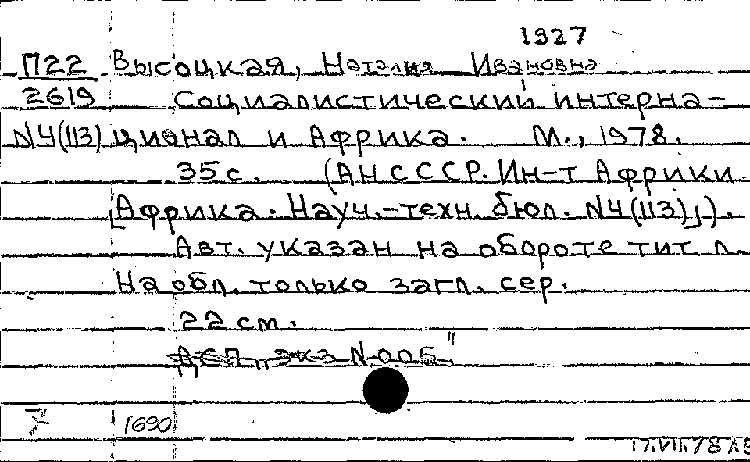 1927
П22 Высоцкая, Наталия Ивановна
2619 Социалистический интерна-
N4(113) ционал и Африка. М., 1978.
35 с. (АН СССР. Ин-т Африки.
[Африка. Науч.-техн. бюл. N4(113)]).
Авт. указан на обороте тит л.
На обл. только загл. сер.
22 см.
ДСП „Экз N 005"
1690
17.VII.78